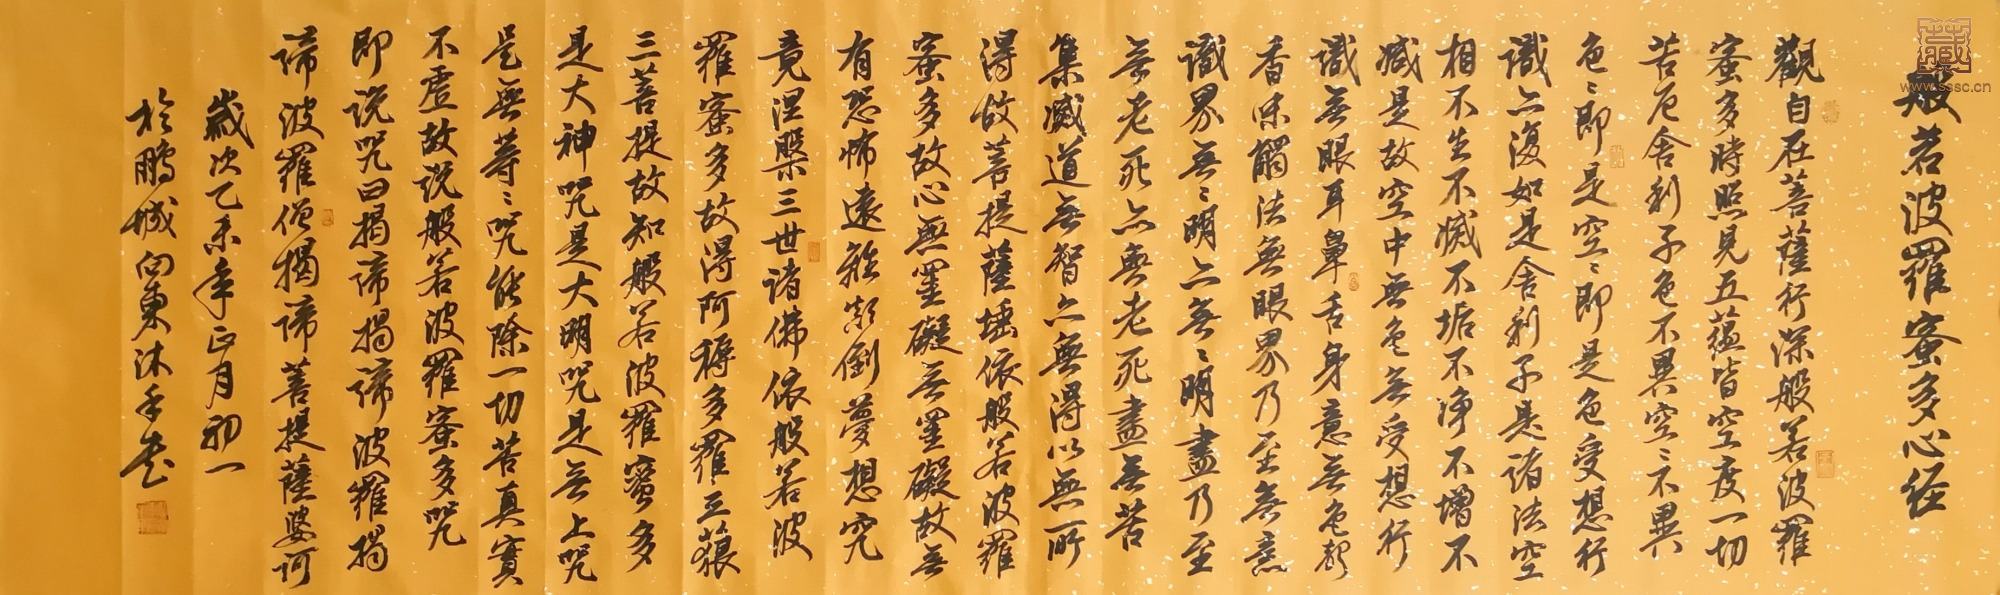 般若波羅蜜多心经
觀自在菩薩行深般若波羅
蜜多時照見五蕴皆空度一切
苦厄舍利子色不異空〻不異
色〻即是空〻即是色受想行
識亦復如是舍利子是诸法空
相不生不滅不垢不净不增不
减是故空中無色无受想行
識無眼耳鼻舌身意無色声
香味觸法無眼界乃至無意
識界無〻明亦無〻明盡乃至
無老死亦無老死盡無苦
集滅道無智亦無得以無所
得故菩提薩埵依般若波羅
蜜多故心無罣礙无罣礙故無
有恐怖遠離颠倒夢想究
竟涅槃三世诸佛依般若波
羅蜜多故得阿耨多羅三藐
三菩提故知般若波羅蜜多
是大神咒是大明咒是无上咒
是無等〻咒能除一切苦真實
不虚故说般若波羅蜜多咒
即说咒曰揭谛揭谛波羅揭
谛波羅僧揭谛菩提薩婆诃
歲次乙未年正月初一
於鹏城向東沐手書
藏
www.sssc.cn